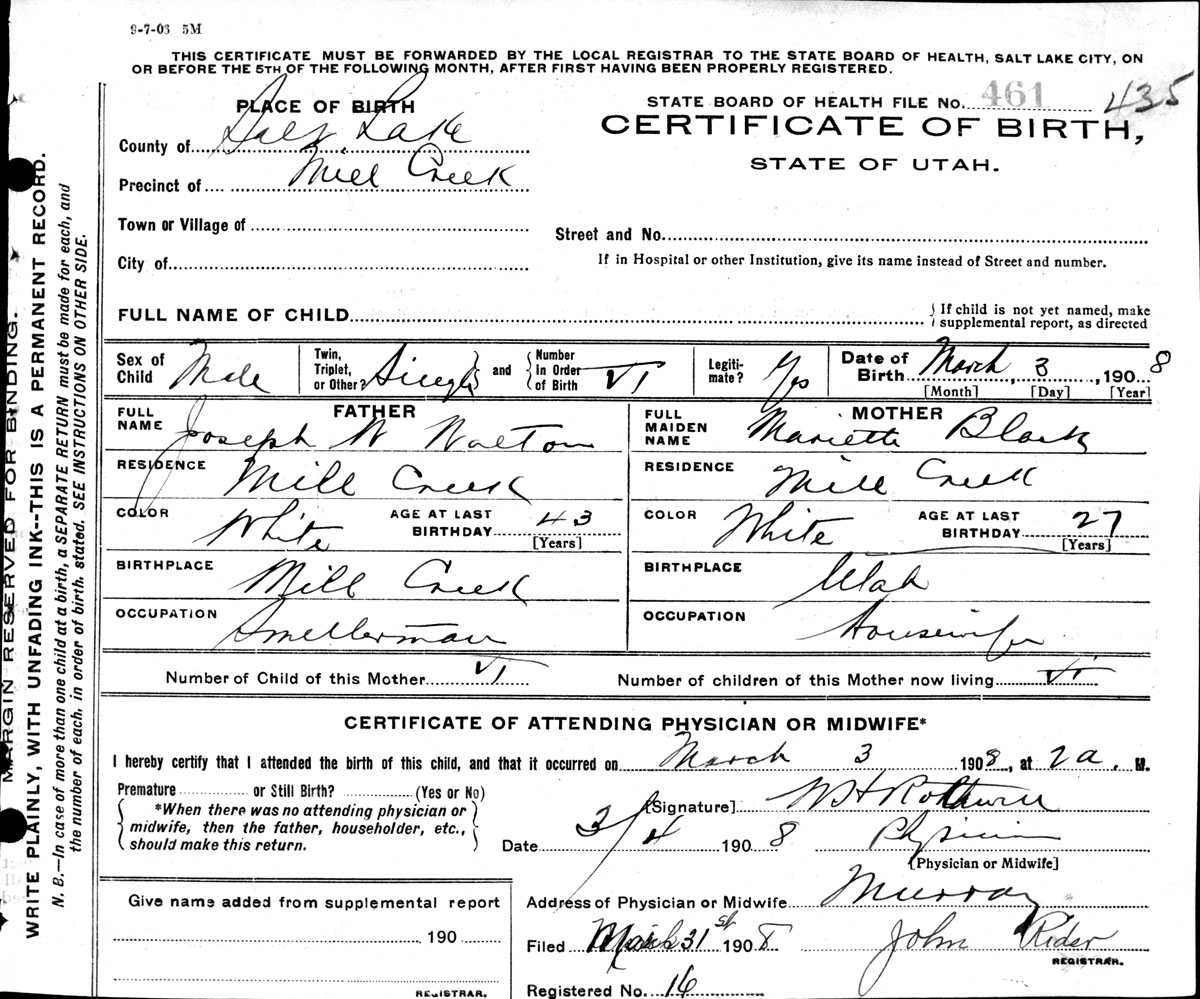 9-7-03 5M
THIS CERTIFICATE MUST BE FORWARDED BY THE LOCAL REGISTRAR TO THE STATE BOARD OF HEALTH, SALT LAKE CITY, ON
OR BEFORE THE 5TH OF THE FOLLOWING MONTH, AFTER FIRST HAVING BEEN PROPERLY REGISTERED.
PLACE OF BIRTH
County of Salt Lake
Precinct of Mill Creek
Town or Village of
City of
STATE BOARD OF HEALTH FILE No. 461 435
CERTIFICATE OF BIRTH,
STATE OF UTAH.
Street and No.
If in Hospital or other Institution, give its name instead of Street and number.
FULL NAME OF CHILD
If child is not yet named, make
supplemental report, as directed
Sex of Child Male
Twin, Triplet, or Other? Single and Number In Order of Birth VI
Legitimate? Yes
Date of Birth March 3, 1908
[Month] [Day] [Year]
FATHER
FULL NAME Joseph W Walton
RESIDENCE Mill Creek
COLOR White AGE AT LAST BIRTHDAY 43
[Years]
BIRTHPLACE Mill Creek
OCCUPATION Smelterman
MOTHER
FULL MAIDEN NAME Mariette Black
RESIDENCE Mill Creek
COLOR White AGE AT LAST BIRTHDAY 27
[Years]
BIRTHPLACE Utah
OCCUPATION Housewife
Number of Child of this Mother VI Number of children of this Mother now living VI
CERTIFICATE OF ATTENDING PHYSICIAN OR MIDWIFE*
I hereby certify that I attended the birth of this child, and that it occurred on March 3 1908, at 2a. M.
Premature or Still Birth? (Yes or No)
*When there was no attending physician or
midwife, then the father, householder, etc.,
should make this return.
[Signature] W H Rothwell
Date 3/4 1908 Physician
[Physician or Midwife]
Address of Physician or Midwife Murray
Filed March 31st 1908 John Rider
REGISTRAR.
Registered No. 16
Give name added from supplemental report
190
REGISTRAR.
MARGIN RESERVED FOR BINDING.
WRITE PLAINLY, WITH UNFADING INK--THIS IS A PERMANENT RECORD.
N. B.—In case of more than one child at a birth, a SEPARATE RETURN must be made for each, and
the number of each, in order of birth, stated. SEE INSTRUCTIONS ON OTHER SIDE.